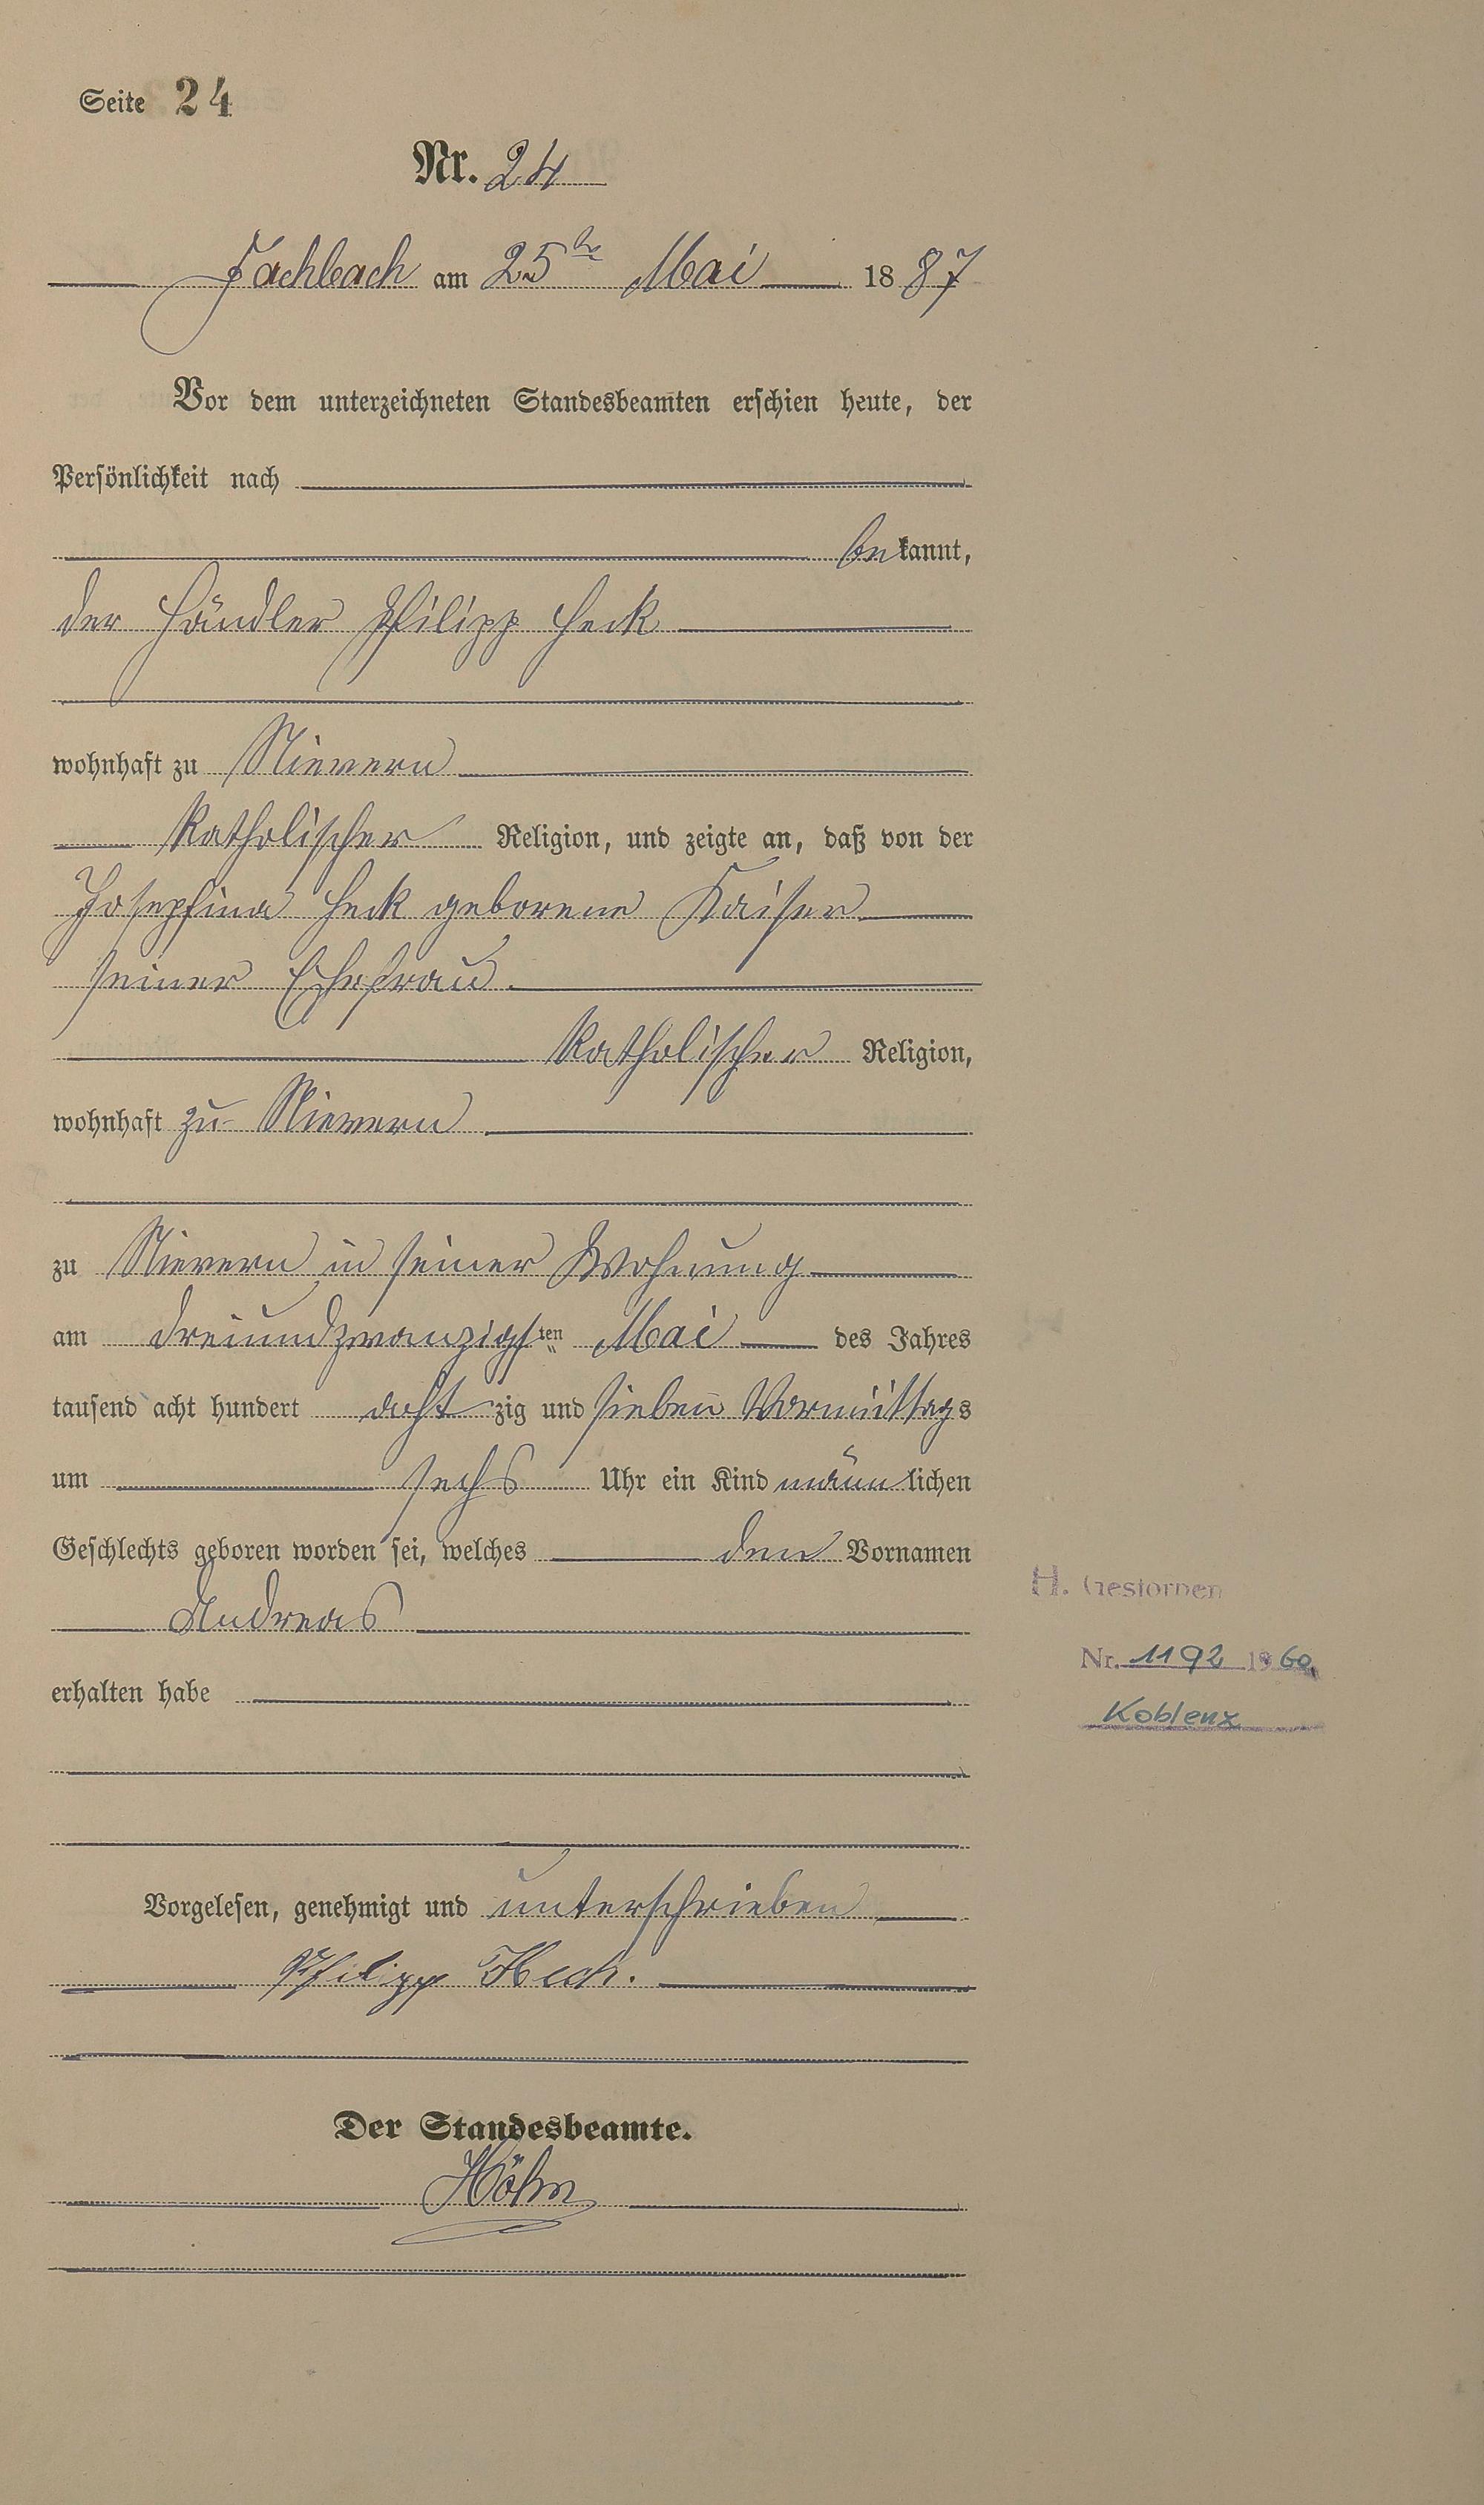 Seite 24
Nr. 24
Fachbach am 25ten Mai 1887
Vor dem unterzeichneten Standesbeamten erschien heute, der
Persönlichkeit nach
bekannt,
der Händler Philipp Heck
wohnhaft zu Nievern
katholischer Religion, und zeigte an, daß von der
Josephina Heck geborene Kaiser
seiner Ehefrau.
katholischer Religion,
wohnhaft zu Nievern
zu Nievern in seiner Wohnung
am dreiundzwanzigsten Mai des Jahres
tausend acht hundert achtzig und sieben Vormittags
um sechs Uhr ein Kind männlichen
Geschlechts geboren worden sei, welches den Vornamen
Andreas
erhalten habe
H. Gestorben
Nr. 1192 1960
Koblenz
Vorgelesen, genehmigt und unterschrieben
Philipp Heck.
Der Standesbeamte.